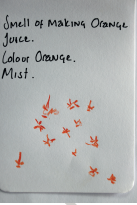 Smell of Making Orange
Juice.
Colour Orange.
Mist.